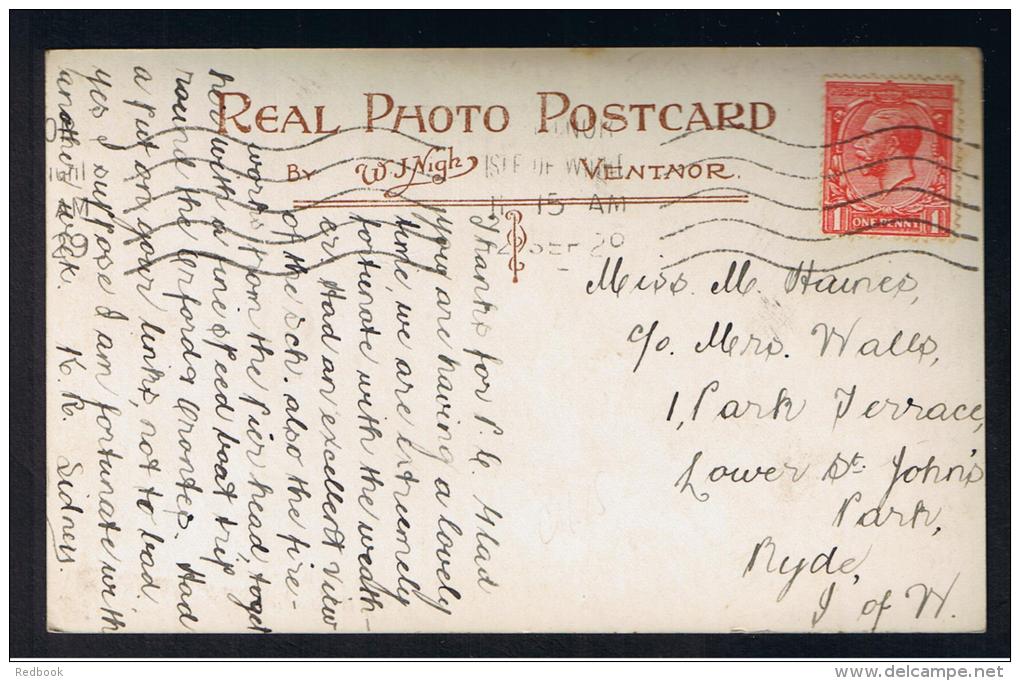 REAL PHOTO POSTCARD
BY W.J. Nigh VENTNOR.
ISLE OF WIGHT
11 15 AM
2 SEP 29
1 ONE PENNY 1
Thanks for P.C. Glad
you are having a lovely
time, we are extremely
fortunate with the weath-
er. Had an excellent view
of the sch. also the fire-
works from the Pier head, to get
her with a fine speed boat trip
round the Graf
a put on your links, not to bad
yes I suppose I am fortunate with
another week. K. R. Sidney.
Miss. M. Haines,
c/o. Mrs. Walls,
1, Park Terrace,
Lower St. John's
Park,
Ryde,
I of W.
Redbook
delcampe.net